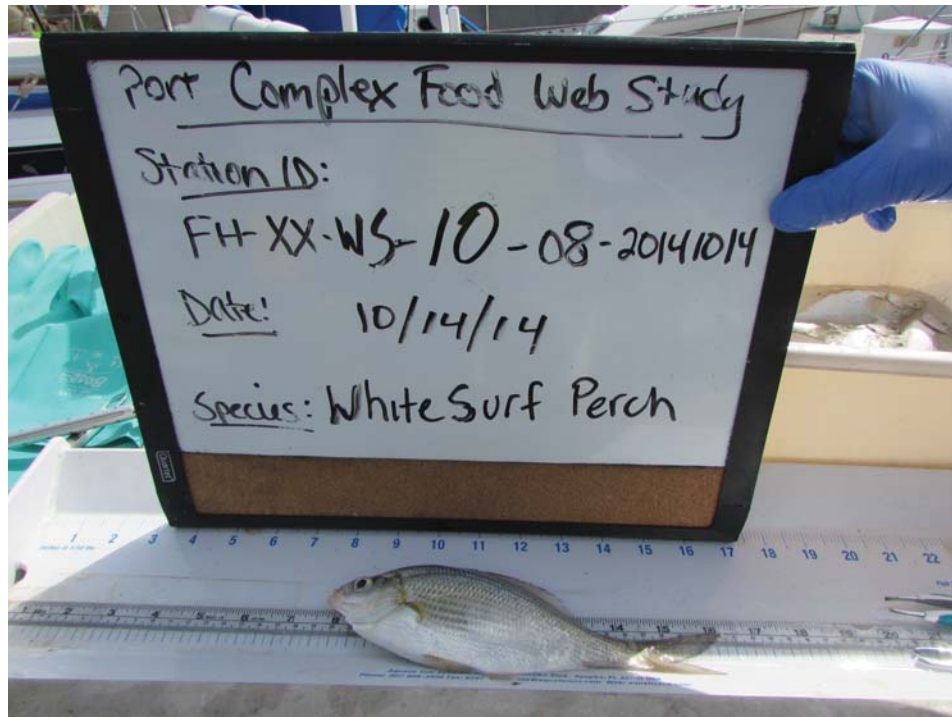 Port Complex Food Web Study
Station ID:
FH-XX-WS-10-08-20141014
Date: 10/14/14
Species: White Surf Perch
Quartet
1 2 3 4 5 6 7 8 9 10 11 12 13 14 15 16 17 18 19 20 21 22
1 2 3 4 5 6 7 8 14 15 16 17 18 19 20